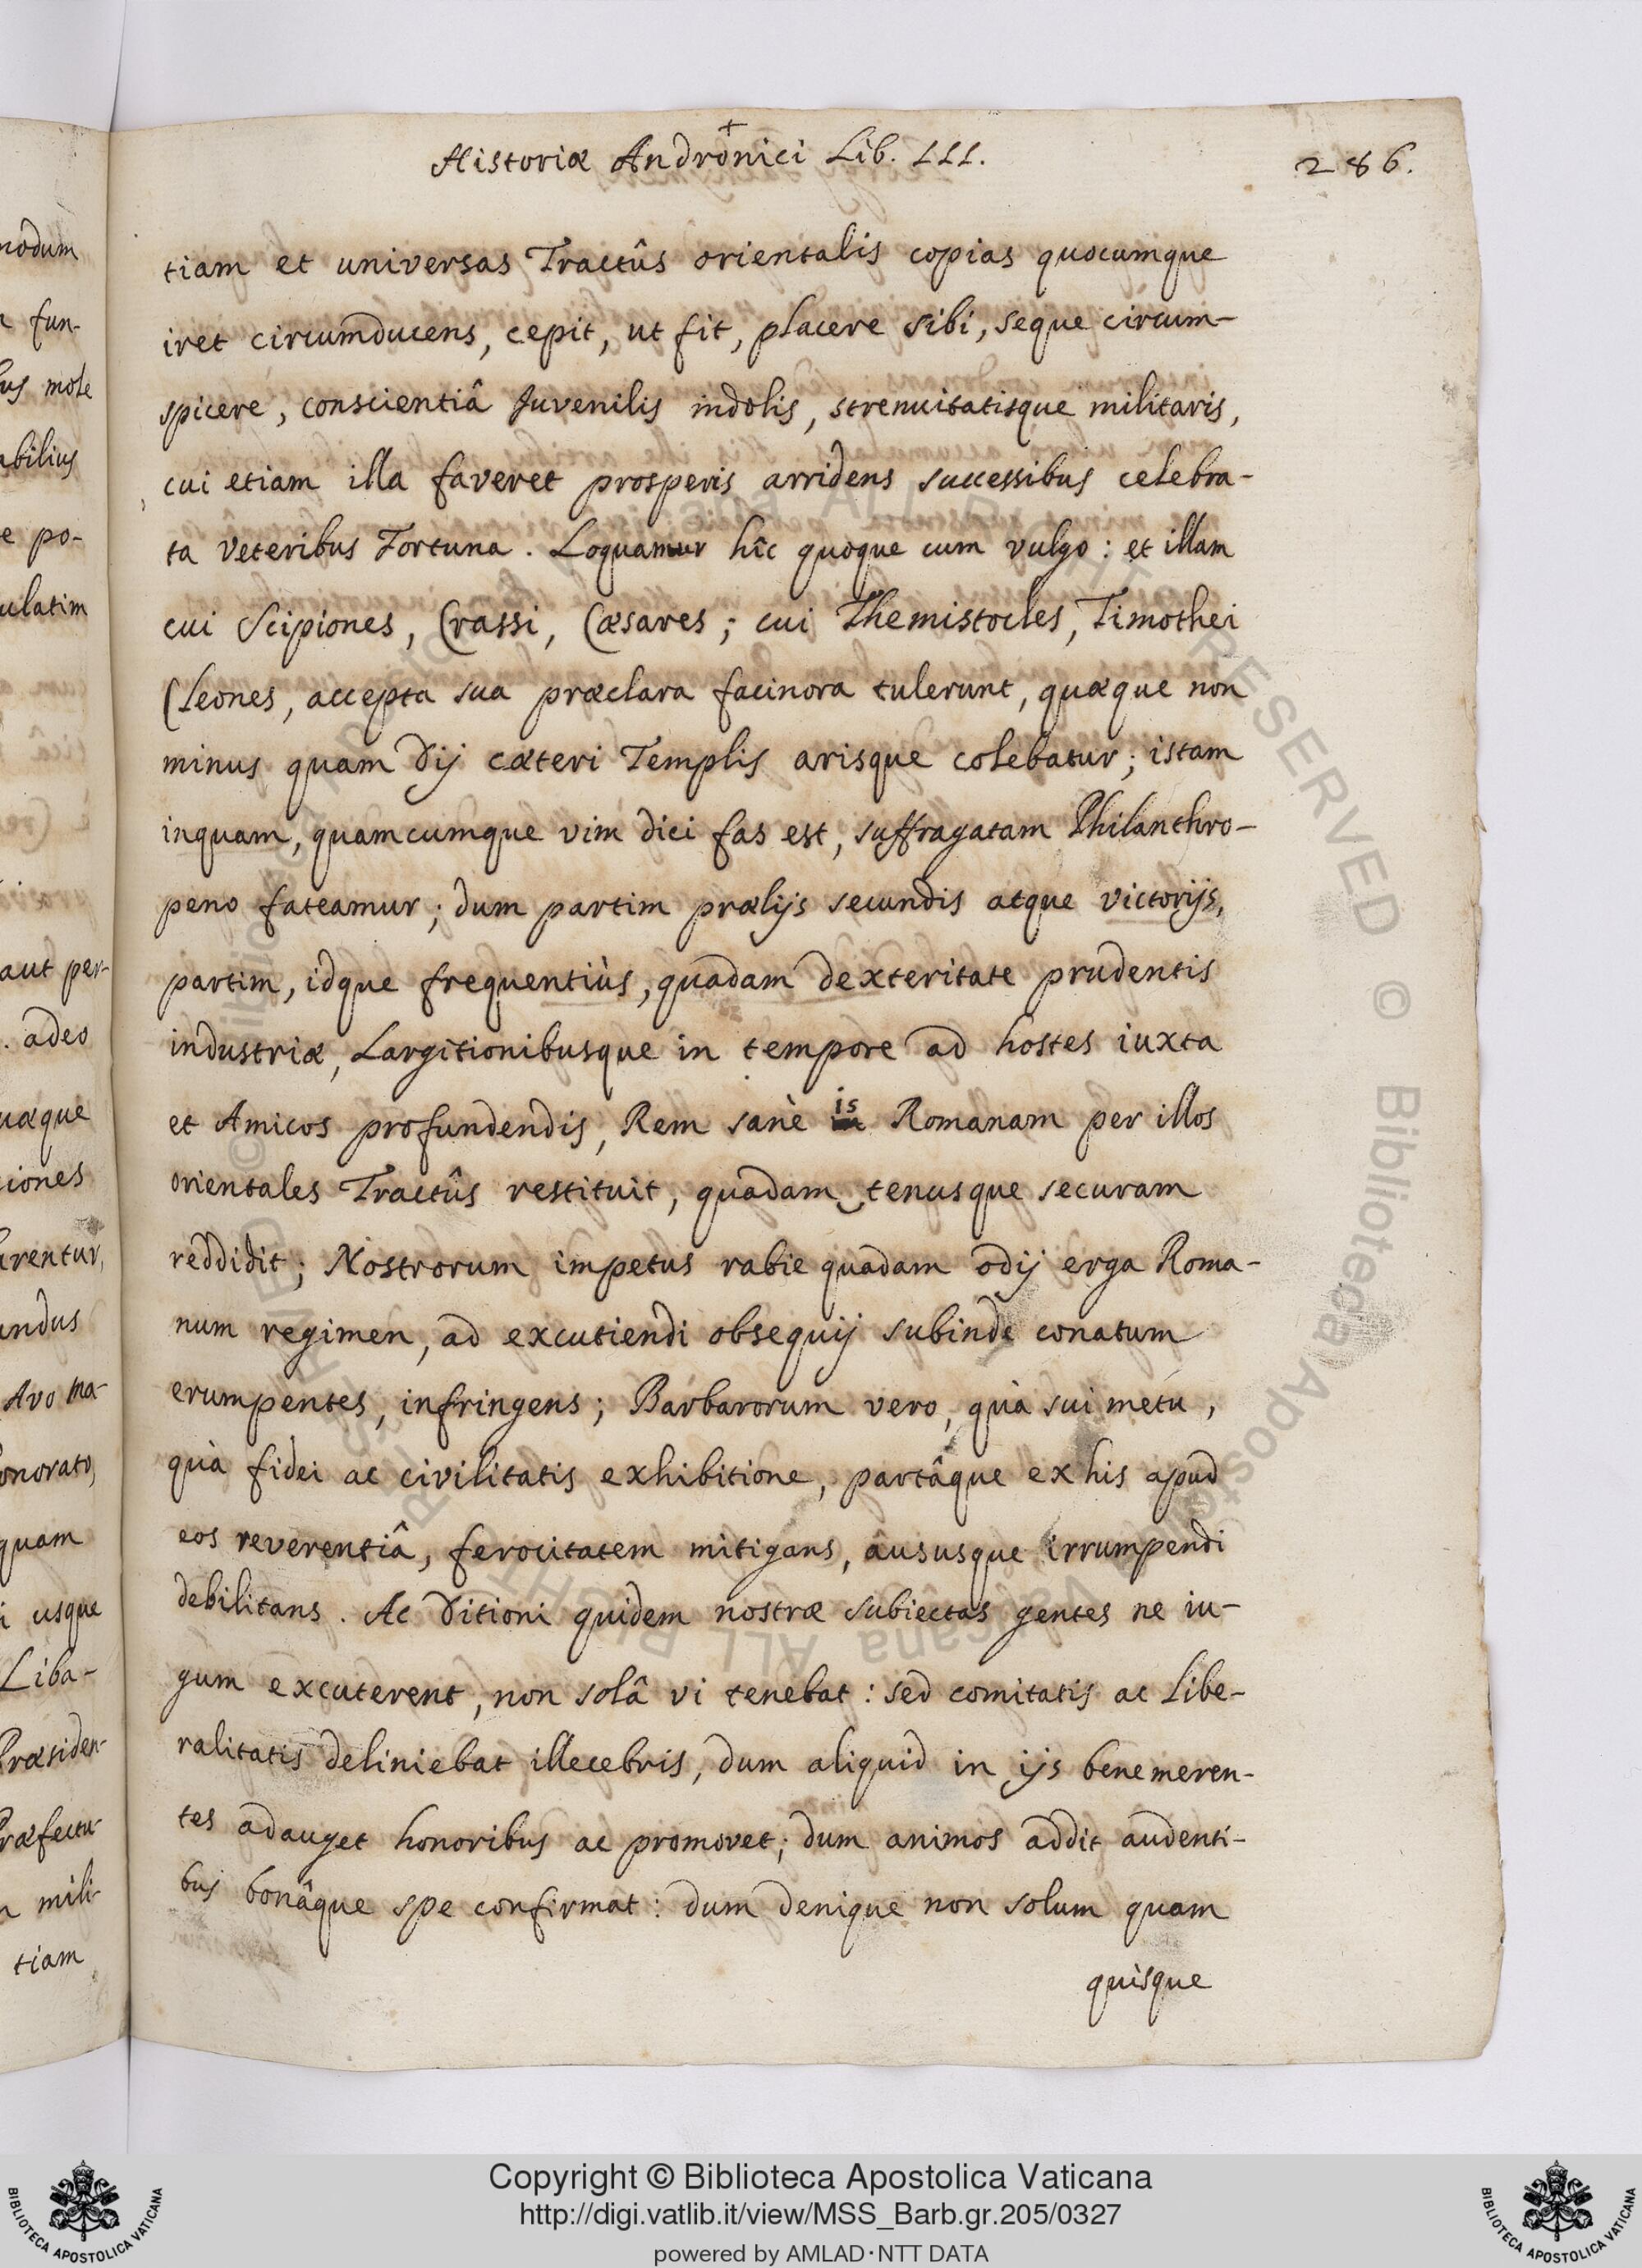 Historiæ Andronici Lib. III.
286.
tiam et universas Tractûs orientalis copias quocumque
iret circumducens, cepit, ut fit, placere sibi, seque circum-
spicere, conscientiâ Juvenilis indolis, strenuitatisque militaris,
cui etiam illa faveret prosperis arridens successibus celebra-
ta veteribus Fortuna. Loquamur hîc quoque cum vulgo: et illam
cui Scipiones, Crassi, Cæsares; cui Themistocles, Timothei
Cleones, accepta sua præclara facinora tulerunt, quæque non
minus quam Dij cæteri Templis arisque colebatur; istam
inquam, quamcumque vim dici fas est, suffragatam Philanthro-
peno fateamur; dum partim prælijs secundis atque victorijs,
partim, idque frequentiùs, quadam dexteritate prudentis
industriæ, Largitionibusque in tempore ad hostes iuxta
et Amicos profundendis, Rem sanè is Romanam per illos
orientales Tractûs restituit, quadam tenusque securam
reddidit; Nostrorum impetus rabie quadam odij erga Roma-
num regimen, ad excutiendi obsequij subinde conatum
erumpentes, infringens; Barbarorum vero, quà sui metu,
quà fidei ac civilitatis exhibitione, partâque ex his apud
eos reverentiâ, ferocitatem mitigans, aususque irrumpendi
debilitans. Ac Ditioni quidem nostræ subiectas gentes ne iu-
gum excuterent, non solâ vi tenebat: sed comitatis ac Libe-
ralitatis deliniebat illecebris, dum aliquid in ijs benemeren-
tes adauget honoribus ac promovet; dum animos addit audenti-
bus bonâque spe confirmat: dum denique non solum quam
quisque
modum
fun-
mole
abilius
po-
ulatim
aut per-
. adeo
uæque
iones
arentur,
undus
Avo ma-
onorato,
quam
i usque
Liba-
Præsiden-
Præfectu-
mili-
tiam
Copyright © Biblioteca Apostolica Vaticana
http://digi.vatlib.it/view/MSS_Barb.gr.205/0327
powered by AMLAD·NTT DATA
BIBLIOTECA APOSTOLICA VATICANA
BIBLIOTECA APOSTOLICA VATICANA